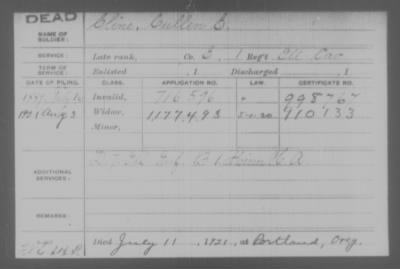 DEAD
NAME OF SOLDIER: Cline, Cullen E.
SERVICE: Late rank, Co. E, 1 Reg't Ill Cav
TERM OF SERVICE: Enlisted , 1 Discharged , 1
DATE OF FILING. CLASS. APPLICATION NO. LAW. CERTIFICATE NO.
Invalid, 716,596 " 998767
1921 Aug 3 Widow, 1177,493 5-1-20 910,133
Minor,
ADDITIONAL SERVICES:
REMARKS:
Died July 11, 1921, at Portland, Oreg.